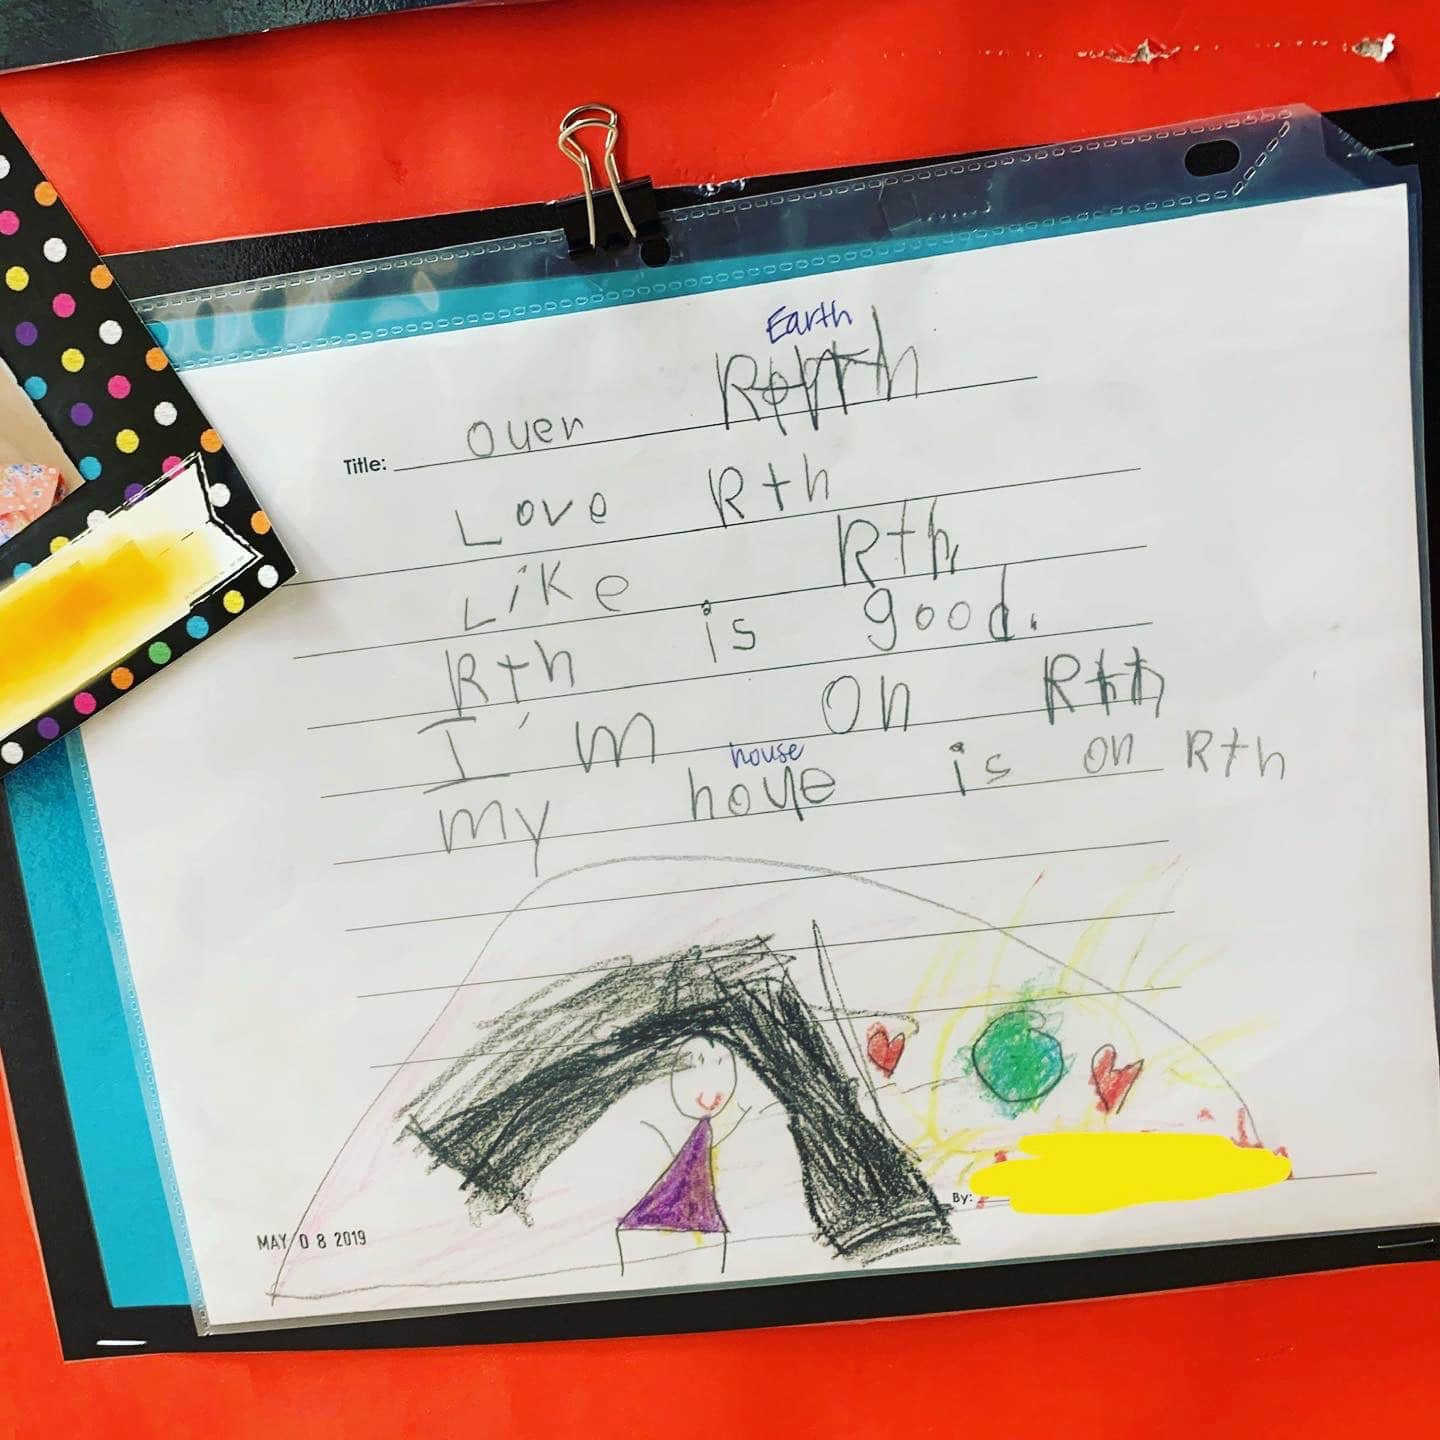 Earth
Title: ouer Rerth
Love Rth
Like Rth
Rth is good.
I'm on Rth
house
my houe is on Rth
By:
MAY 08 2019